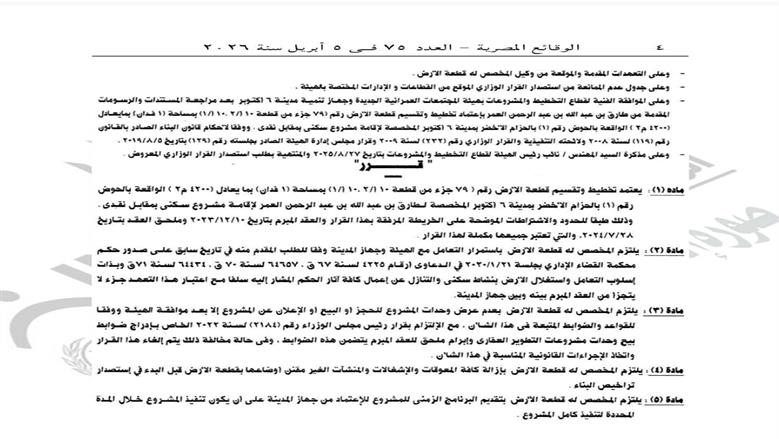 ٤ الوقائع المصرية – العدد ٧٥ فى ٥ أبريل سنة ٢٠٢٦
- وعلى التعهدات المقدمة والموقعة من وكيل المخصص له قطعة الأرض .
- وعلى جدول عدم الممانعة من استصدار القرار الوزاري الموقع من القطاعات و الإدارات المختصة بالهيئة .
- وعلى الموافقة الفنية لقطاع التخطيط والمشروعات بهيئة المجتمعات العمرانية الجديدة وجهاز تنمية مدينة ٦ أكتوبر بعد مراجعة المستندات والرسومات
المقدمة من طارق بن عبد الله بن عبد الرحمن العمر بإعتماد تخطيط وتقسيم قطعة الأرض رقم (٧٩ جزء من قطعة ١٠ /٢ .١٠ /١) بمساحة (١ فدان) بما يعادل
(٤٢٠٠ م٢) الواقعة بالحوض رقم (١) بالحزام الأخضر بمدينة ٦ أكتوبر المخصصة لإقامة مشروع سكنى بمقابل نقدى . ووفقا لأحكام قانون البناء الصادر بالقانون
رقم (١١٩) لسنة ٢٠٠٨ ولائحته التنفيذية والقرار الوزاري رقم (٢٣٢) لسنة ٢٠٠٩ وقرار مجلس إدارة الهيئة الصادر بجلسته رقم (١٢٩) بتاريخ ٢٠١٩/٨/٥ .
- وعلى مذكرة السيد المهندس / نائب رئيس الهيئة لقطاع التخطيط والمشروعات بتاريخ ٢٠٢٥/٨/٢٧ والمنتهية بطلب استصدار القرار الوزاري المعروض .
" قـــــرر "
مادة (١) : يعتمد تخطيط وتقسيم قطعة الأرض رقم ( ٧٩ جزء من قطعة ١٠ /٢ .١٠ /١) بمساحة (١ فدان) بما يعادل (٤٢٠٠ م٢ ) الواقعة بالحوض
رقم (١) بالحزام الأخضر بمدينة ٦ أكتوبر المخصصة لـطارق بن عبد الله بن عبد الرحمن العمر لإقامة مشروع سكنى بمقابل نقدى .
وذلك طبقا للحدود والاشتراطات الموضحة على الخريطة المرفقة بهذا القرار والعقد المبرم بتاريخ ٢٠٢٣/١٢/١٠ وملحق العقد بتاريخ
٢٠٢٤/٧/٢٨. والتي تعتبر جميعها مكملة لهذا القرار .
مادة (٢) : يلتزم المخصص له قطعة الأرض باستمرار التعامل مع الهيئة وجهاز المدينة وفقا للطلب المقدم منه في تاريخ سابق على صدور حكم
محكمة القضاء الإداري بجلسة ٢٠٢٠/١/٢١ فى الدعاوى أرقام ٤٢٢٥ لسنة ٦٧ ق ، ٦٤٦٥٧ لسنة ٧٠ ق ، ٦٤٤٣٤ لسنة ٧١ ق وبذات
إسلوب التعامل واستغلال الأرض بنشاط سكنى والتنازل عن إعمال كافة آثار الحكم المشار إليه سلفا مع اعتبار هذا التعهد جزء لا
يتجزأ من العقد المبرم بينه وبين جهاز المدينة.
مادة (٣) : يلتزم المخصص له قطعة الأرض بعدم عرض وحدات المشروع للحجز أو البيع أو الإعلان عن المشروع إلا بعد موافقة الهيئة ووفقا
للقواعد والضوابط المتبعة فى هذا الشأن . مع الإلتزام بقرار رئيس مجلس الوزراء رقم (٢١٨٤) لسنة ٢٠٢٢ الخاص بإدراج ضوابط
بيع وحدات مشروعات التطوير العقارى وإبرام ملحق للعقد المبرم يتضمن هذه الضوابط . وفى حالة مخالفة ذلك يتم إلغاء هذا القرار
واتخاذ الإجراءات القانونية المناسبة في هذا الشأن .
مادة (٤) : يلتزم المخصص له قطعة الأرض بإزالة كافة المعوقات والإشغالات والمنشآت الغير مقنن أوضاعها بقطعة الأرض قبل البدء في إستصدار
تراخيص البناء .
مادة (٥) : يلتزم المخصص له قطعة الأرض بتقديم البرنامج الزمنى للمشروع للإعتماد من جهاز المدينة على أن يكون تنفيذ المشروع خلال المدة
المحددة لتنفيذ كامل المشروع .